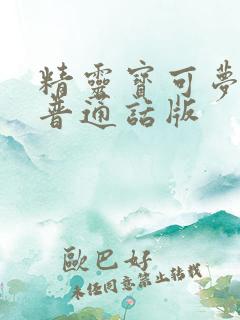 精靈寶可夢
普通話版
歐巴好
未經同意禁止轉載